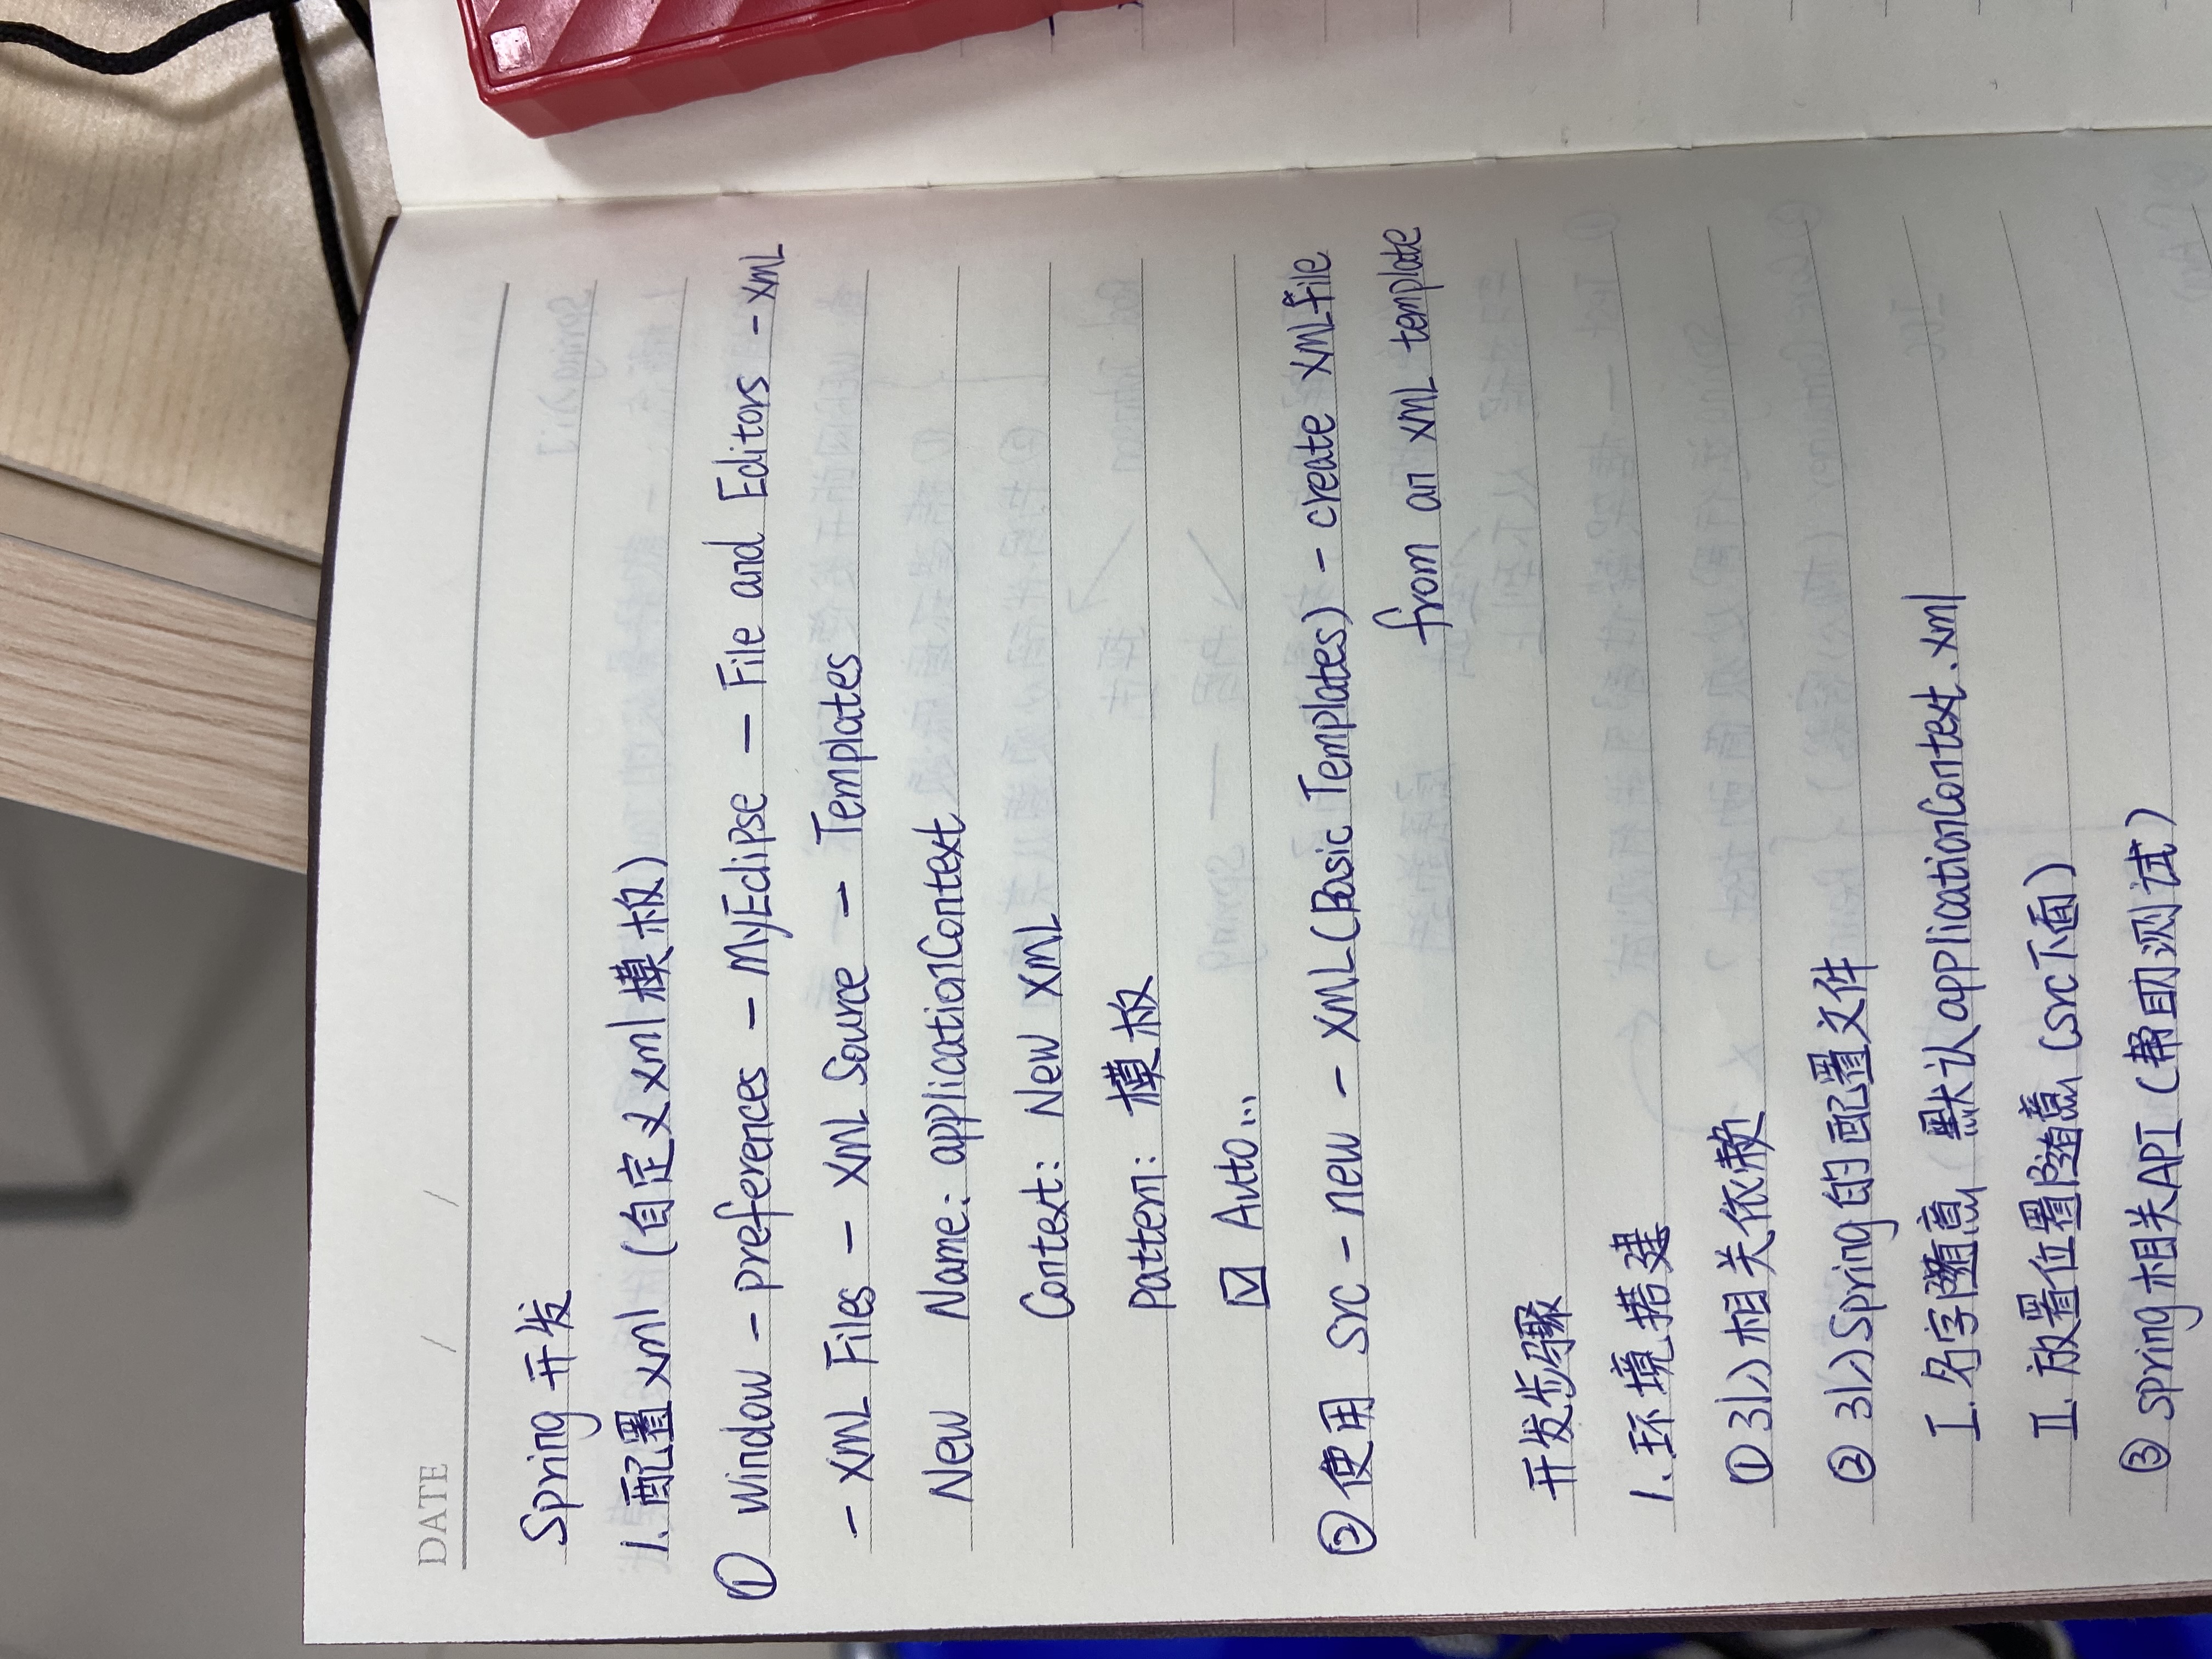 DATE / /
Spring 开发
1. 配置xml (自定义xml模板)
① window - preferences - MyEclipse - File and Editors - XML
- XML Files - XML Source - Templates
New Name: applicationContext
Context: New XML
pattern: 模板
☑ Auto...
② 使用 src - new - XML(Basic Templates) - create XMLfile
from an XML template
开发步骤
1. 环境搭建
① 引入相关依赖
② 引入Spring的配置文件
I. 名字随意 默认applicationContext.xml
II. 放置位置随意 (src下面)
③ spring相关API (帮助测试)